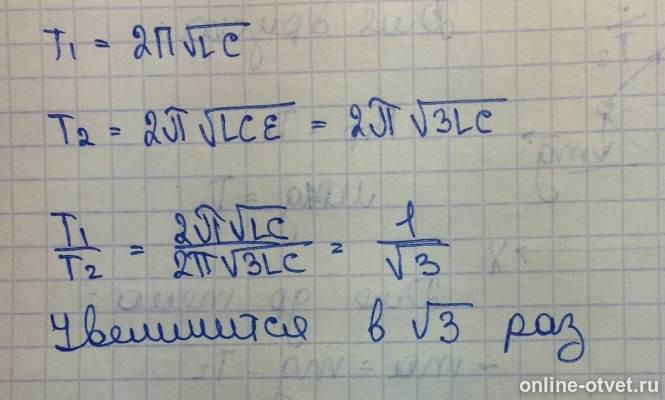 T₁ = 2π√LC
T₂ = 2π√LCε = 2π√3LC
T₁/T₂ = 2π√LC / 2π√3LC = 1/√3
Увеличится в √3 раз
online-otvet.ru